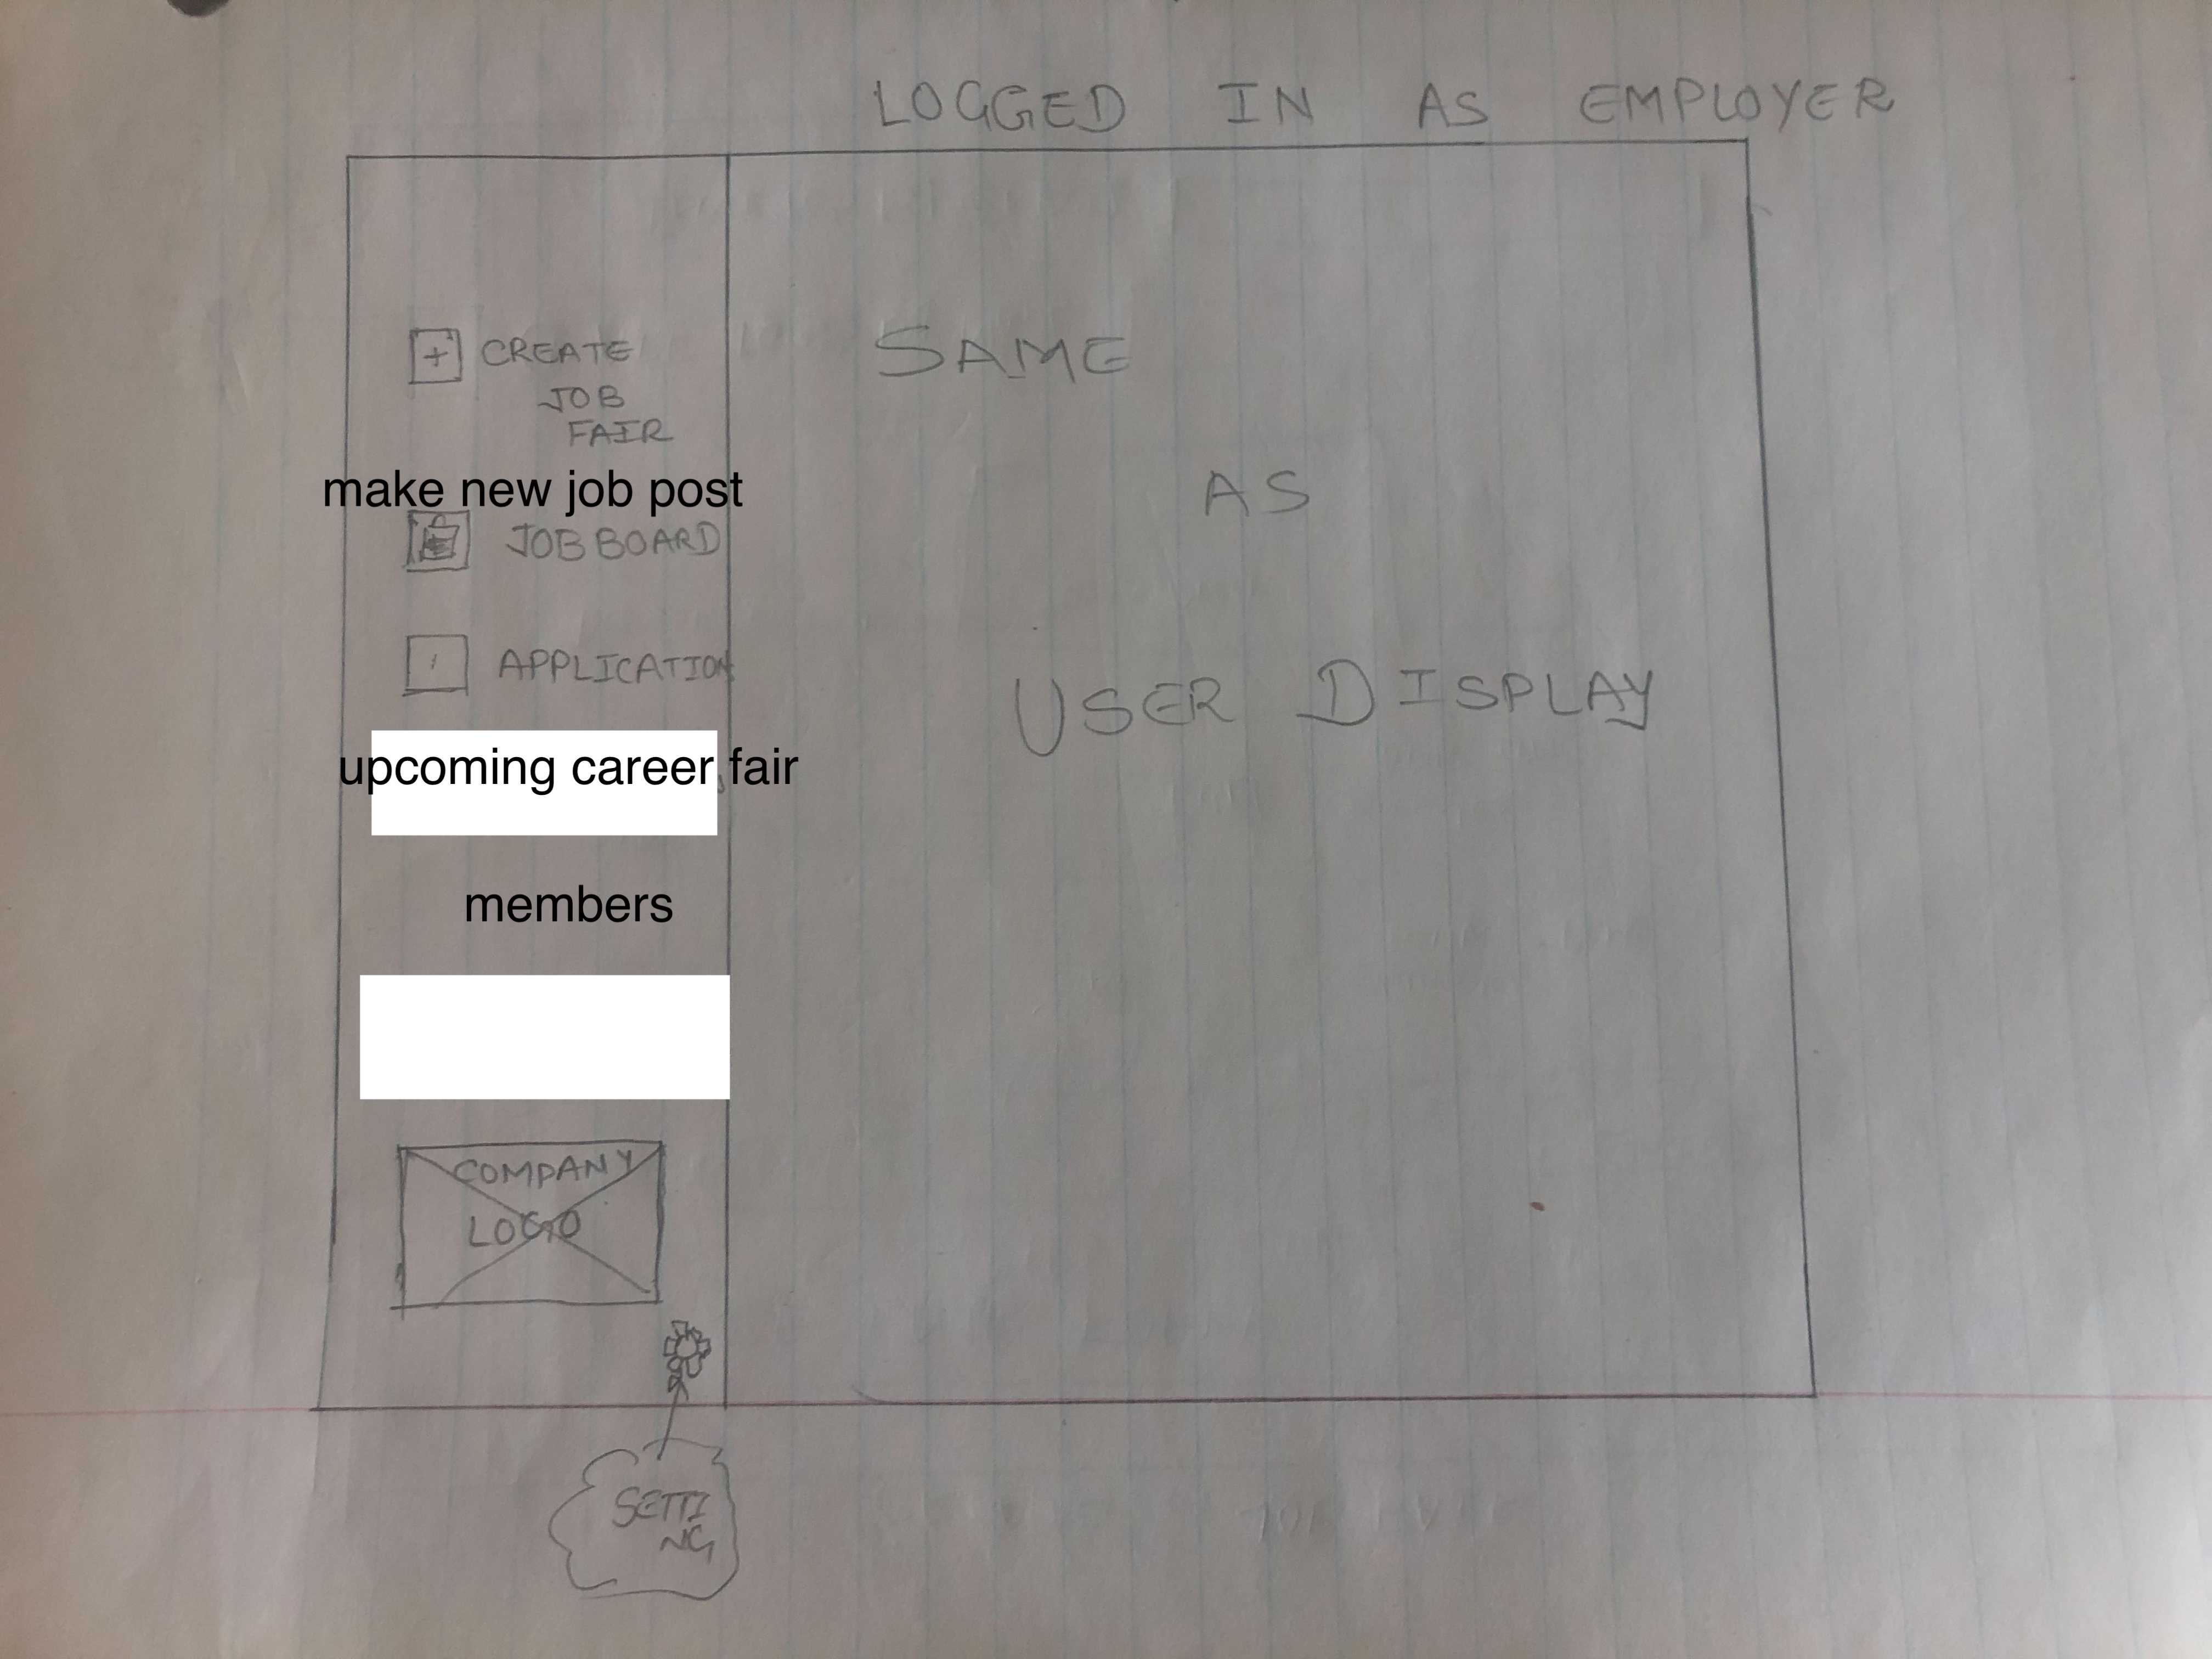 LOGGED IN AS EMPLOYER
CREATE
JOB
FAIR
make new job post
JOB BOARD
APPLICATION
upcoming career fair
members
COMPANY
LOGO
SETTI
NG
SAME
AS
USER DISPLAY